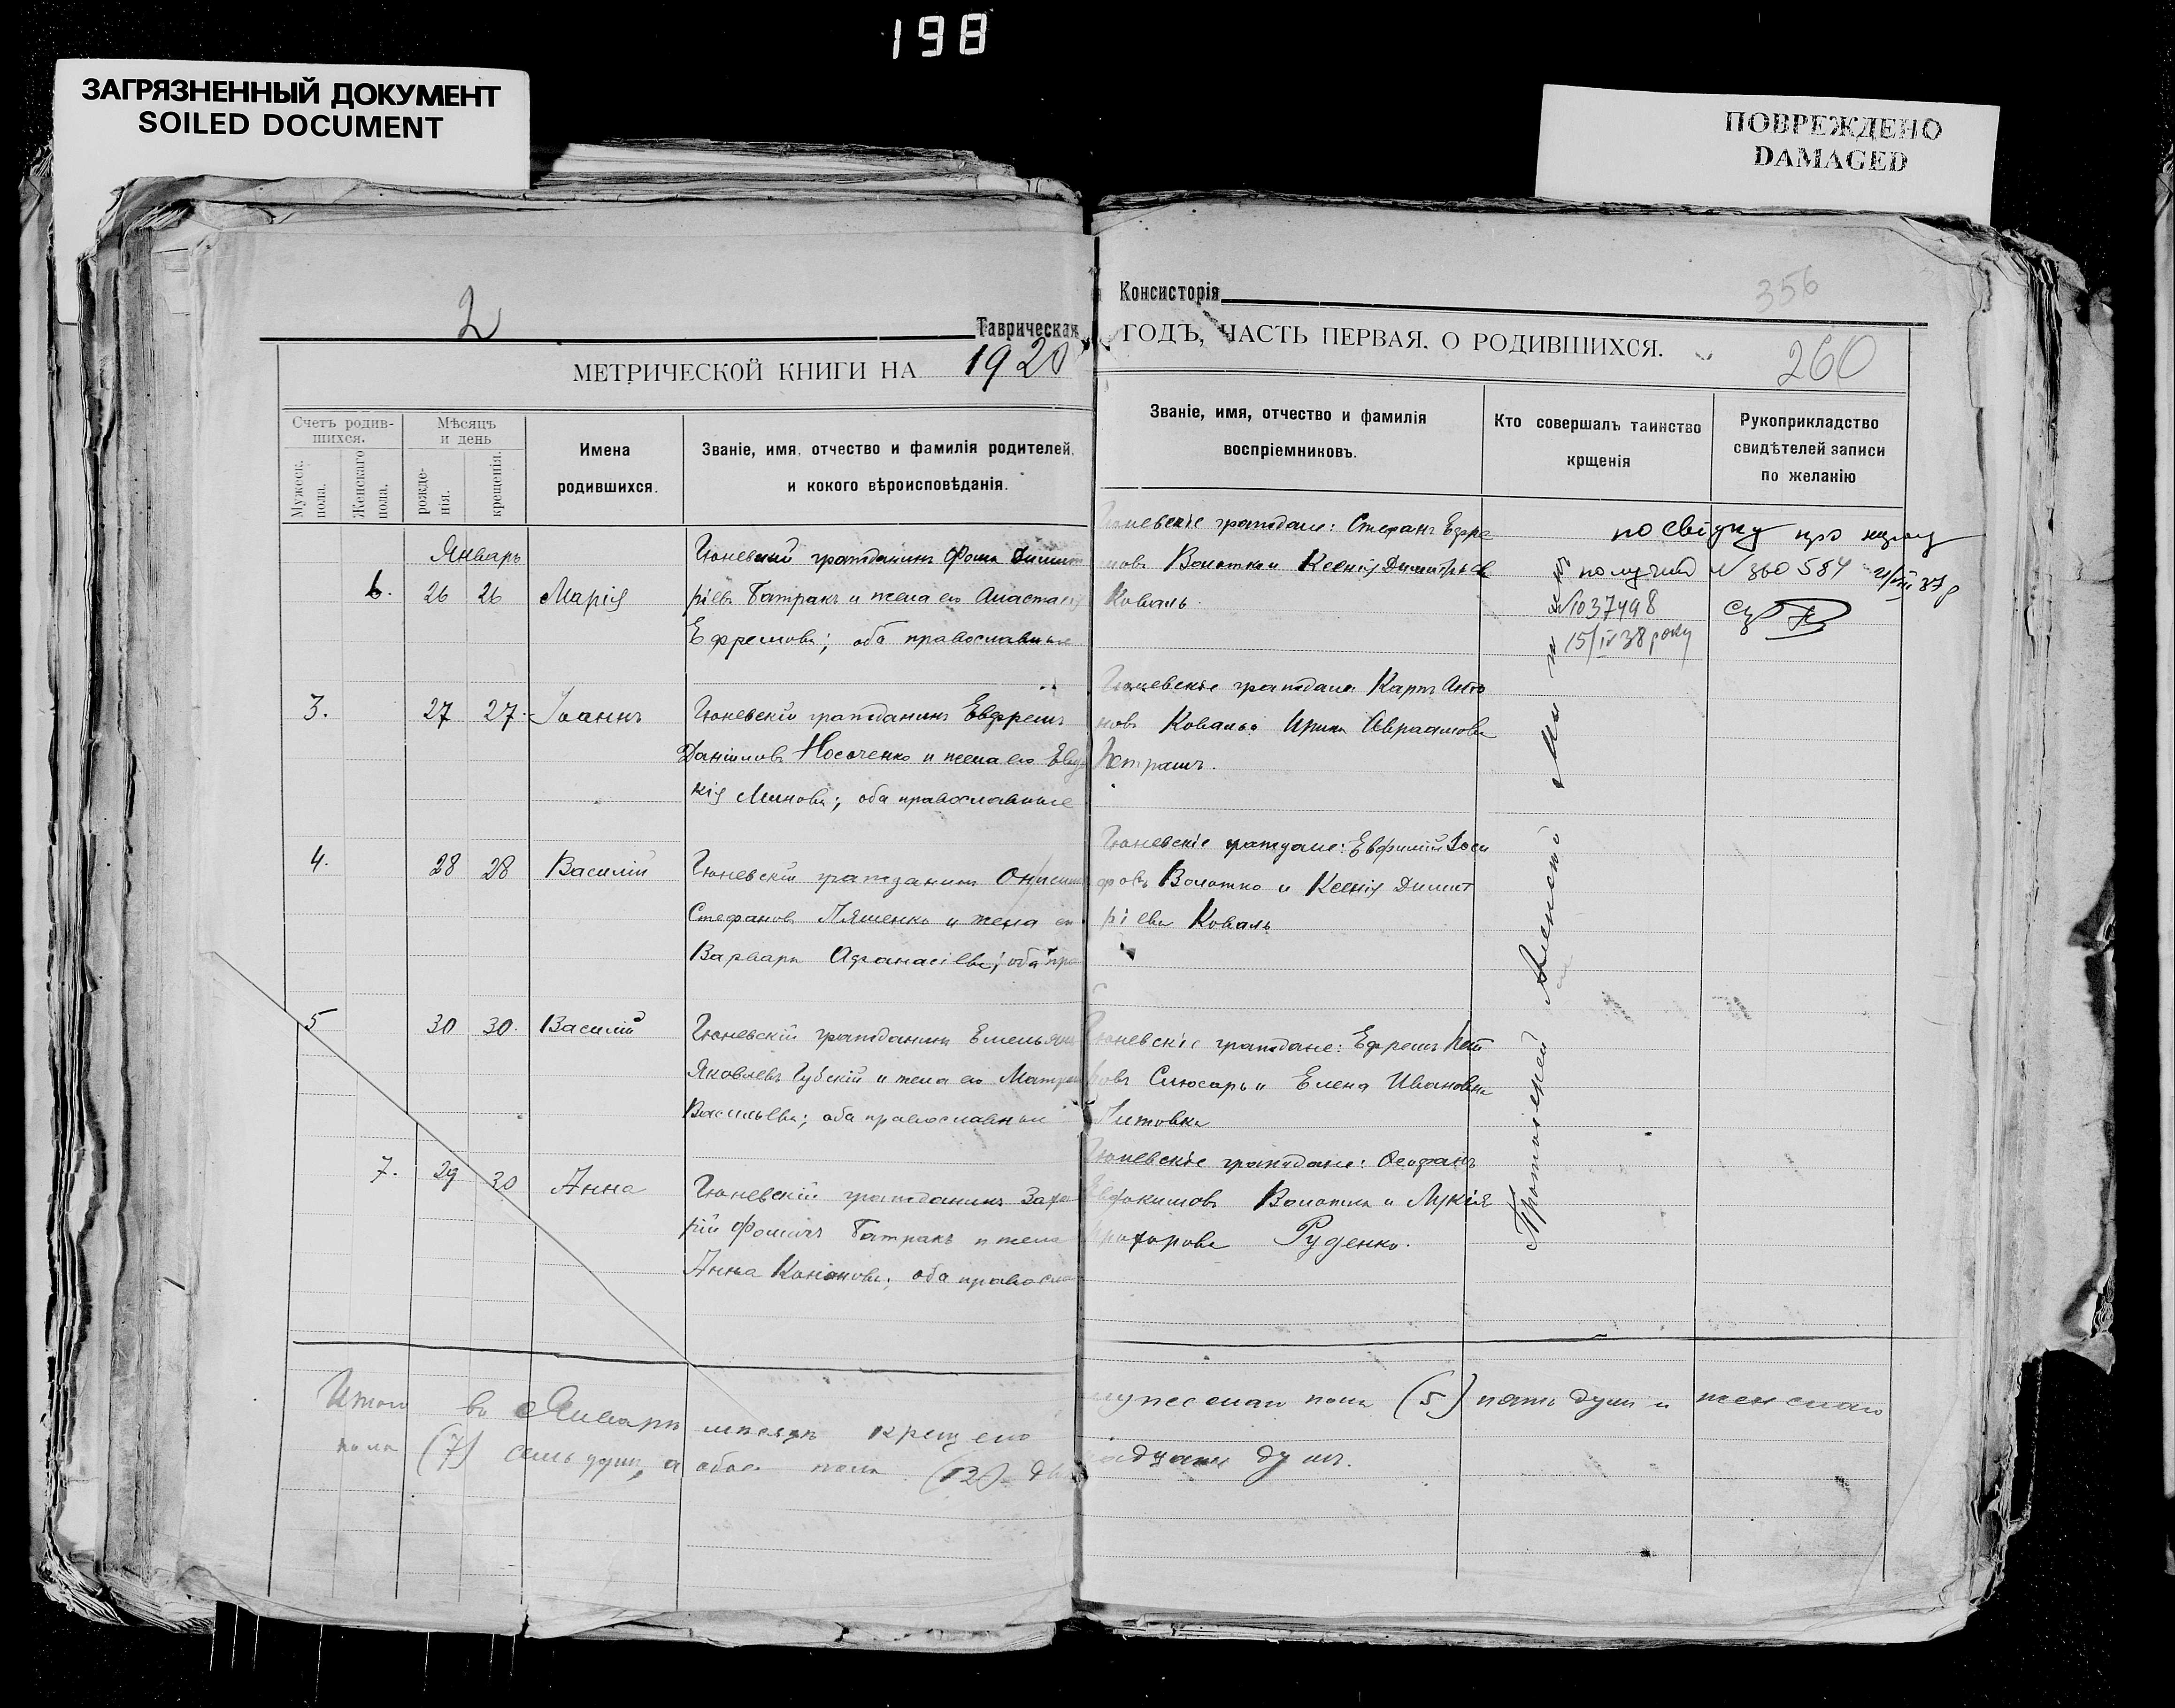 198
ЗАГРЯЗНЕННЫЙ ДОКУМЕНТ
SOILED DOCUMENT
ПОВРЕЖДЕНО
DAMAGED
2
Таврическая
Консисторія
356
МЕТРИЧЕСКОЙ КНИГИ НА 1920
ГОДЪ, ЧАСТЬ ПЕРВАЯ, О РОДИВШИХСЯ.
260
Счетъ родив-
шихся.
Мужеск.
пола.
Женскаго
пола.
Мѣсяцъ
и день
рожде-
нія.
крещенія.
Имена
родившихся.
Званіе, имя, отчество и фамилія родителей,
и кокого вѣроисповѣданія.
Званіе, имя, отчество и фамилія
воспріемниковъ.
Кто совершалъ таинство
крщенія
Рукоприкладство
свидѣтелей записи
по желанію
Январь
6. 26 26 Марія
Гюневскій гражданинъ Фома Димит
ріевъ Батракъ и жена его Анастасія
Ефремова; оба православные
Гюневскіе граждане: Стефанъ Ефре
мовъ Волотка и Ксенія Димитріева
Коваль.
получив N 360584
№1037498
15/IV 38 року
3. 27 27. Іоаннъ
Гюневскій гражданинъ Евфремъ
Даніиловъ Носоченко и жена его Евдо
кія Минова; оба православные
Гюневскіе граждане: Карпъ Анто
новъ Коваль и Ирина Авраамова
Петрашъ.
4. 28 28 Василій
Гюневскій гражданинъ Онисимъ
Стефановъ Ляшенко и жена его
Варвара Афанасіева; оба пра
Гюневскіе граждане: Евфимій Іоси
фовъ Волотко и Ксенія Димит
ріева Коваль
5 30 30. Василій
Гюневскій гражданинъ Емельянъ
Яковлевъ Губскій и жена его Матрона
Васильева; оба православные
Гюневскіе граждане: Ефремъ Пет
ровъ Слюсарь и Елена Иванова
Литовка
7. 29 30 Анна
Гюневскій гражданинъ Заха
рій Фоминъ Батракъ и жена
Анна Кононова; оба правосла
Гюневскіе граждане: Феофанъ
Евдокимовъ Волотка и Лукія
Прохорова Руденко.
Протоіерей Алексей
Итого въ Январѣ мѣсяцѣ крещено
мужескаго пола (5) пять душъ и женскаго
пола (7) семь душъ, а обоего пола (12) две
надцать душъ.